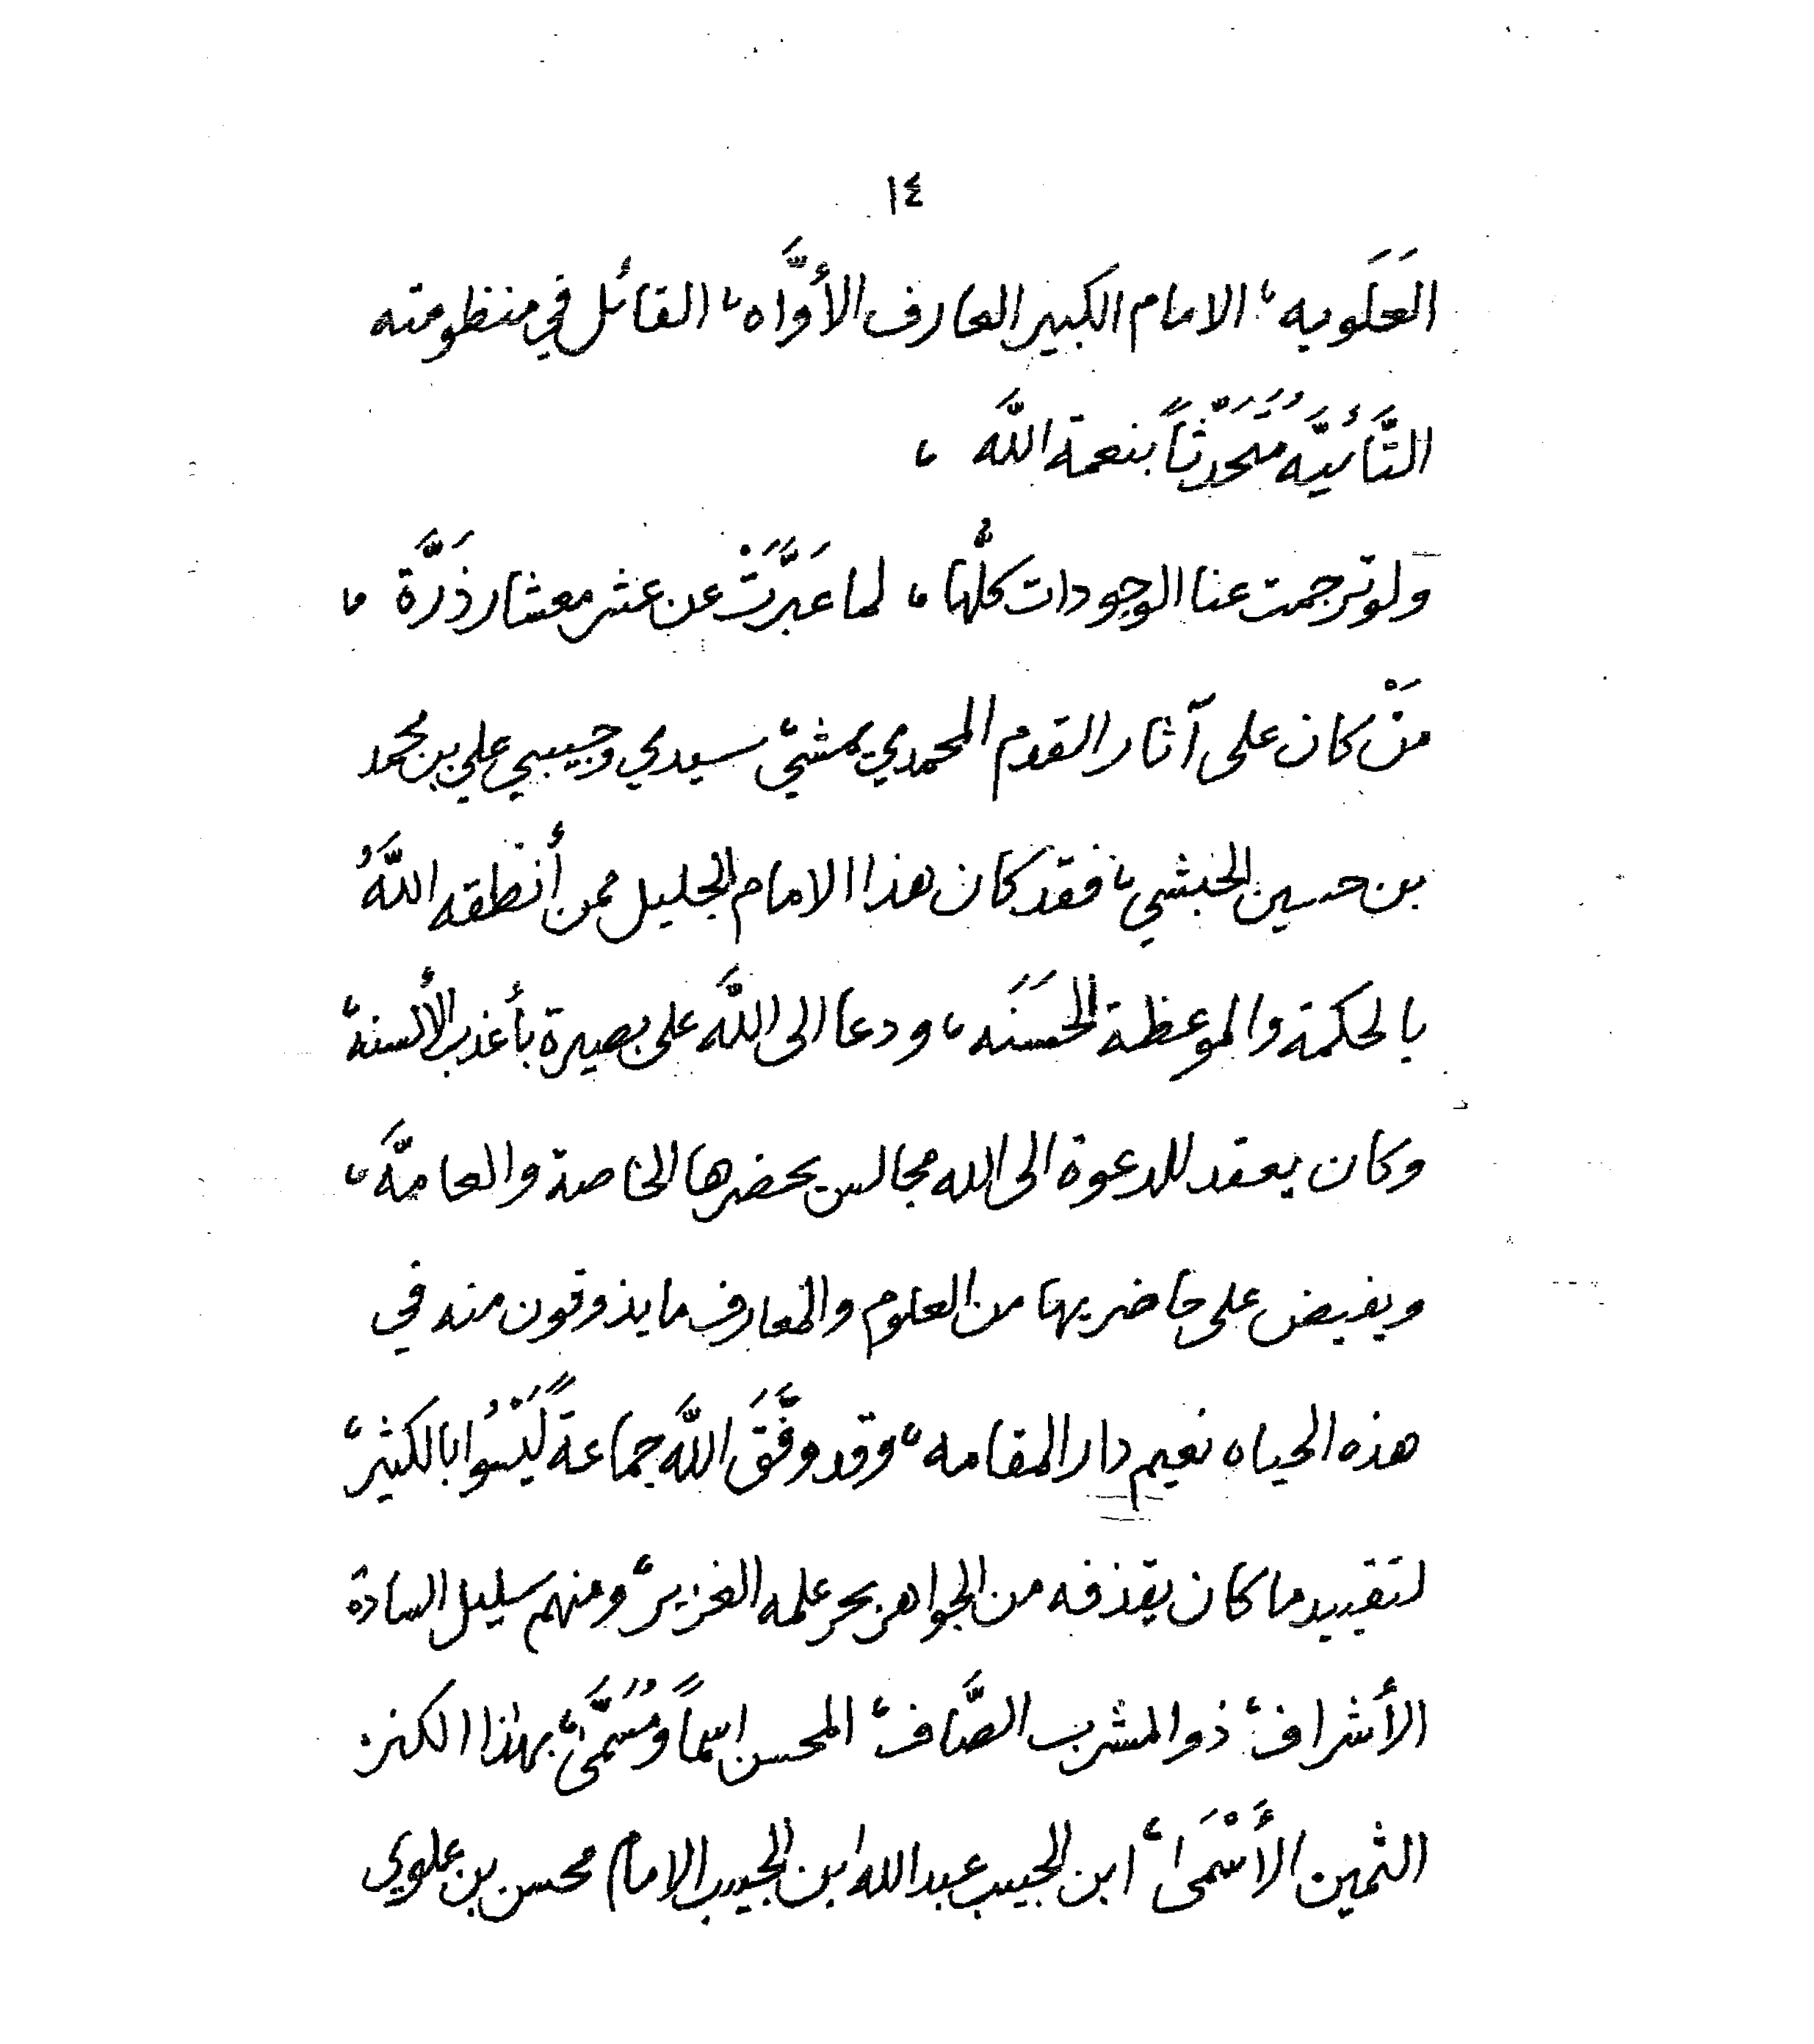 ١٤
العَلَويه، الامام الكبير العارف الأوَّاه، القائل في منظومته
التَّائيَّه مُتَحَدِّثاً بنعمة اللَّه ،
ولو ترجمت عنا الوجودات كلُّها ، لما عَبَّرَتْ عن عشر معشار ذَرَّة ،
مَنْ كان على آثار القدم المحمدي يمشي، سيدي وحبيبي علي بن محمد
بن حسين الحبشي، فقد كان هذا الامام الجليل ممن أنطقه اللَّهُ
بالحكمة والموعظة الحسَنَه، ودعا الى اللَّه على بصيرة بأعذب الألسنه،
وكان يعقد للدعوة الى الله مجالس يحضرها الخاصة والعامَّه،
ويفيض على حاضريها من العلوم والمعارف ما يذوقون منه في
هذه الحياه نعيم دار المقامه، وقد وفَّقَ اللَّه جماعةً لَيْسُوا بالكثير،
لتقييد ما كان يقذفه من الجواهر بحر علمه الغزير، ومنهم سليل السادة
الأشراف، ذو المشرب الصَّاف، المحسن اسماً ومُسَمَّى، بهذا الكنز
الثمين الأَسْمَى، ابن الحبيب عبد الله ابن الحبيب الامام محسن بن علوي